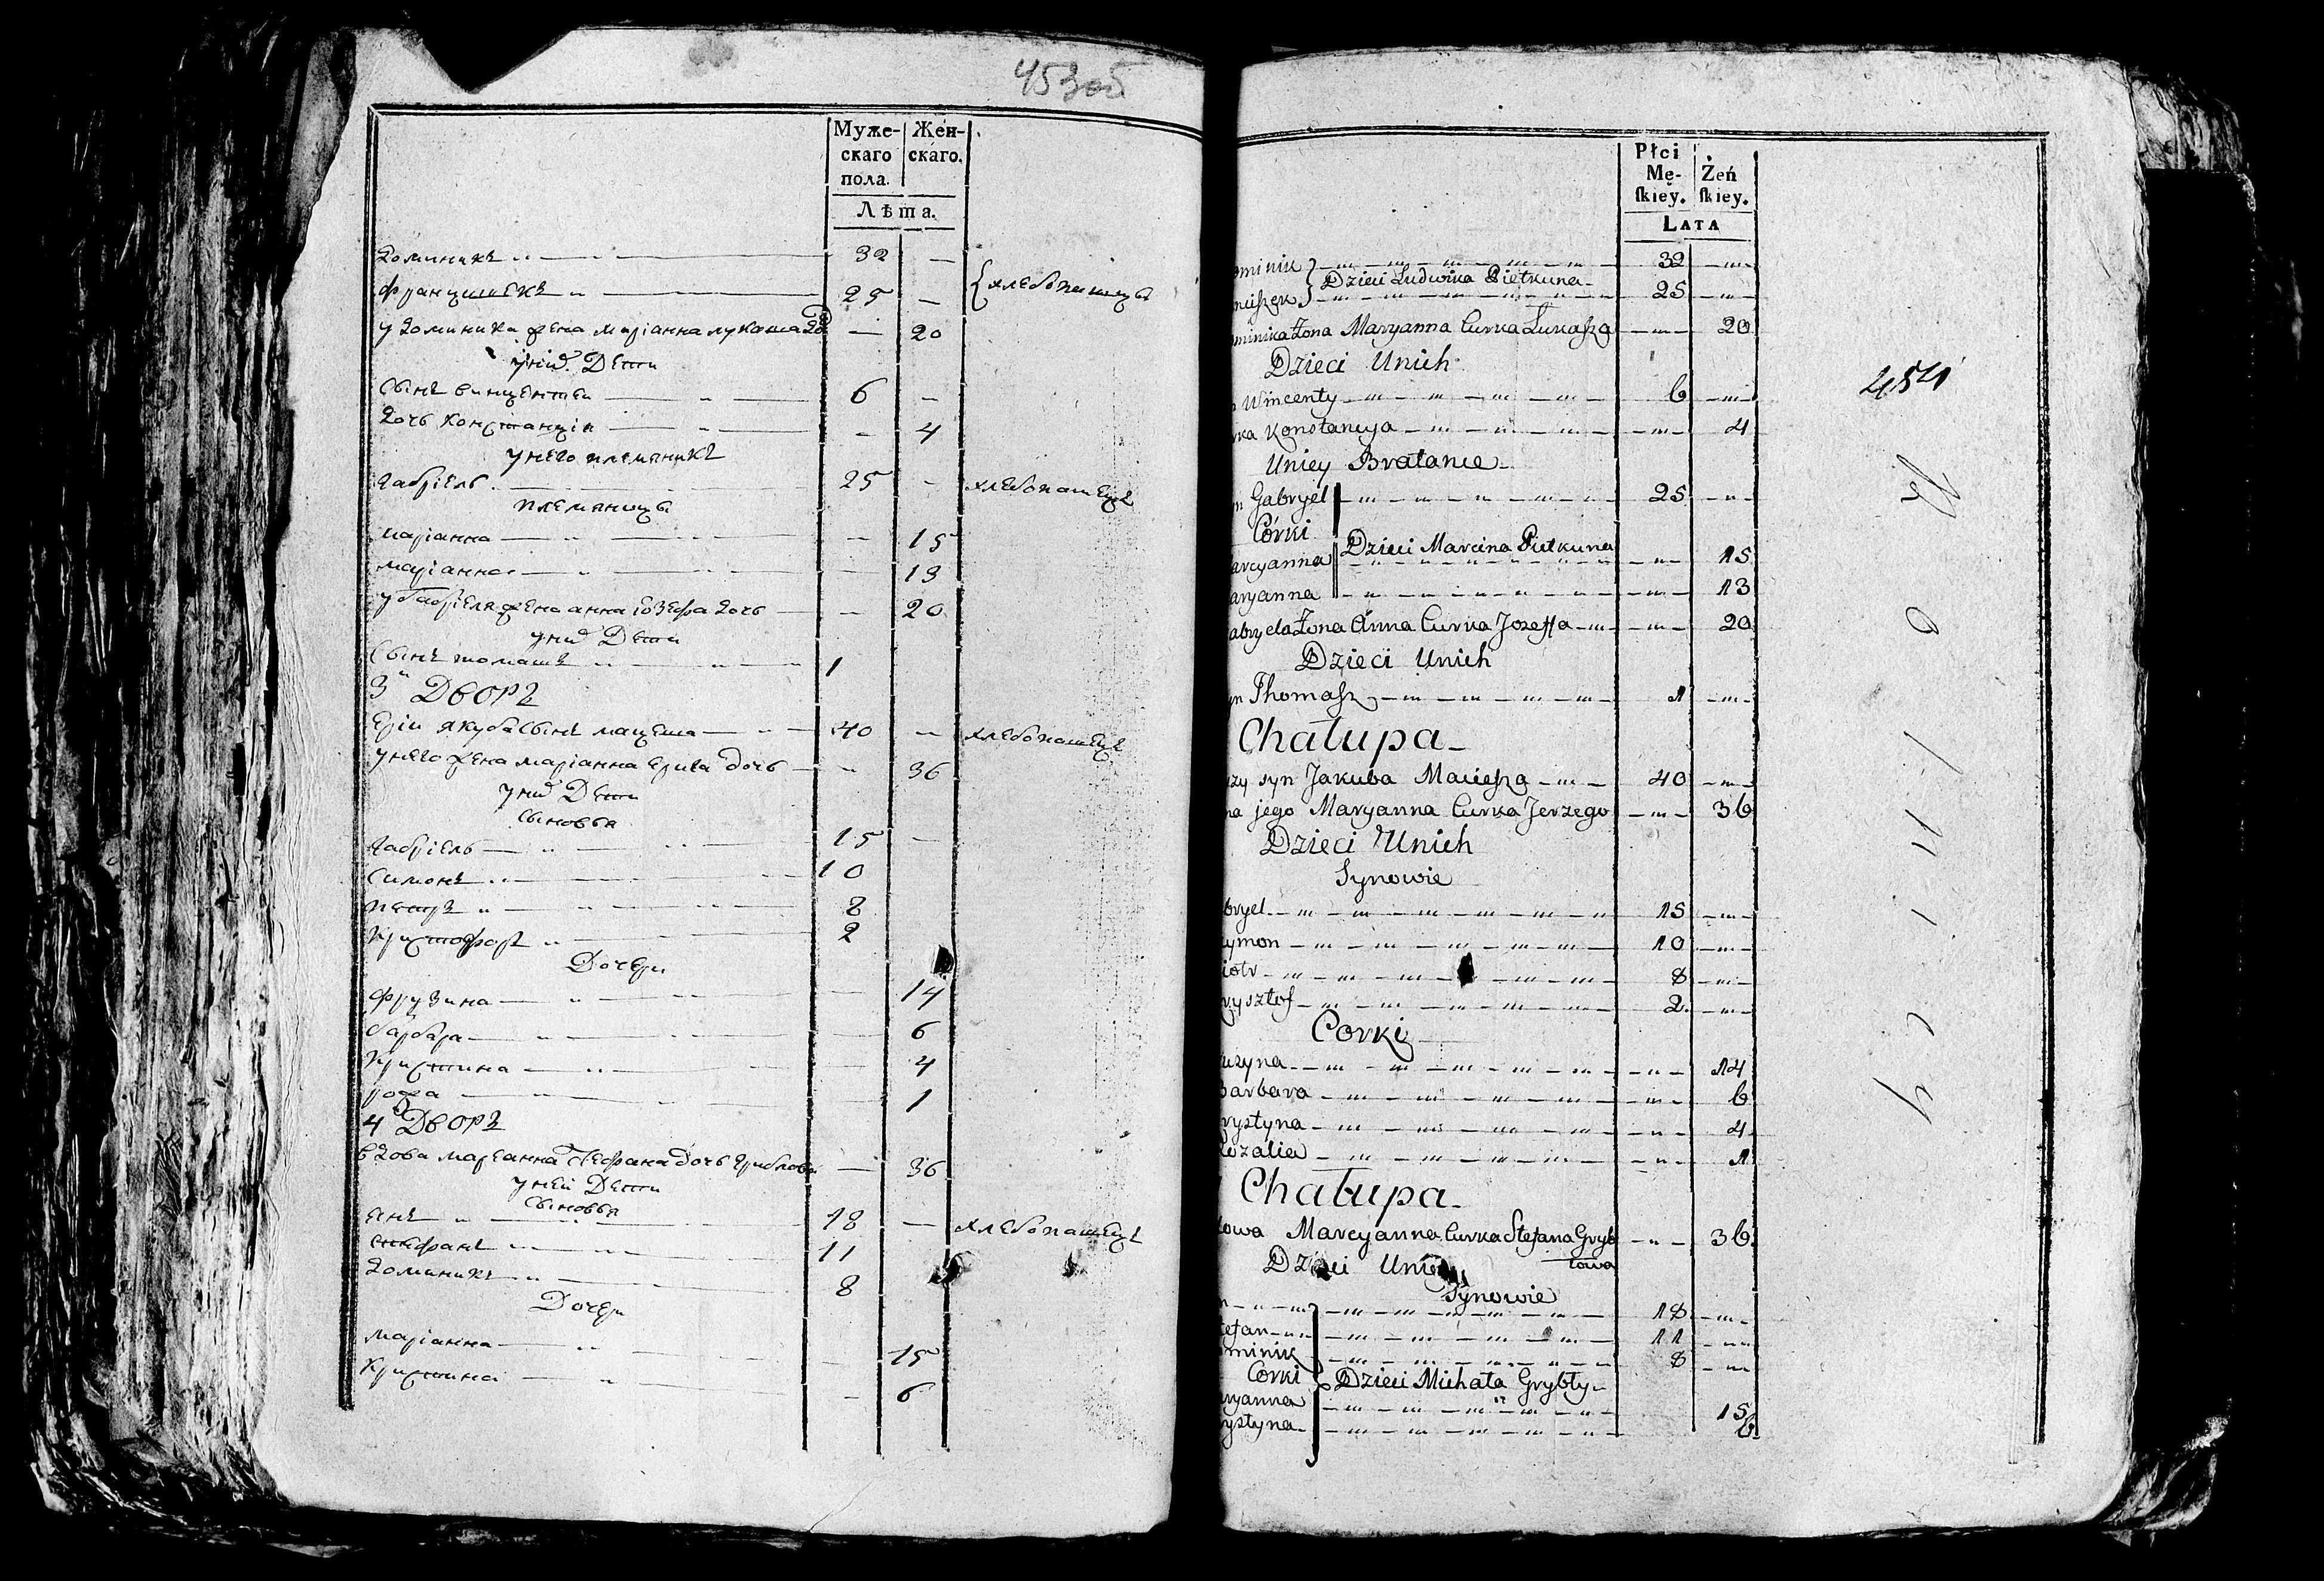 453об
Муже-
скаго
пола.
Жен-
скаго.
Лѣта.
Доминикъ 32 —
Францишекъ 25 — { хлебопашцы
у Доминика жена Маріанна Лукаша До — 20
у них Дети
Сынъ Винцентеи 6 —
Дочь Констанція — 4
у него племяникъ
Габріель 25 — хлебопашецъ
племяницы
Маріанна — 15
Маріанна — 13
у Габріеля жена Анна Іозефа Дочь — 20
у них Дети
Сынъ томашъ 1
3й Дворъ
Ерін Якуба Сынъ мацеша 40 — хлебопашецъ
у него жена маріанна Ерига дочь — 36
у них Дети
Сыновья
Габріель 15 —
Симонъ 10
петръ 8
Криштофоръ 2
Дочери
Фрузина — 14
барбара — 6
Криштина — 4
роза — 1
4й Дворъ
вдова Марцанна Стефана дочь Грибтова — 36
у ней Дети
Сыновья
Янъ 18 — хлебопашецъ
Стефанъ 11
Доминикъ 8
Дочери
Маріанна 15
Криштина — 6
Płci
Mę-
ſkiey.
Żeń
ſkiey.
LATA
454
ominik } 32
Dzieci Ludwika Pietkuna
ciſzek } 25
minika Żona Maryanna Curka Lukaſza 20
Dzieci Unich
Wincenty 6
rka Konstancya 4
Uniey Bratanie
n Gabryel 25
Córki
Dzieci Marcina Pietkuna
arcyanna 15
aryanna 13
abryela Żona Anna Curka Jozeffa 20
Dzieci Unich
yn Thomaſz 1
Chałupa
rzy syn Jakuba Macieſza 40
na jego Maryanna Curka Jerzego 36
Dzieci Unich
Synowie
bryel 15
zymon 10
iotr 8
rysztof 2
Corki
uzyna 14
Barbara 6
rystyna 4
Rozalia 1
Chałupa
owa Marcyanna Curka Stefana Gryb 36
towa
Dzieci Uniey
Synowie
n 18
tefan 11
minik 8
Corki } Dzieci Michała Grybty
ryanna 15
rystyna 6